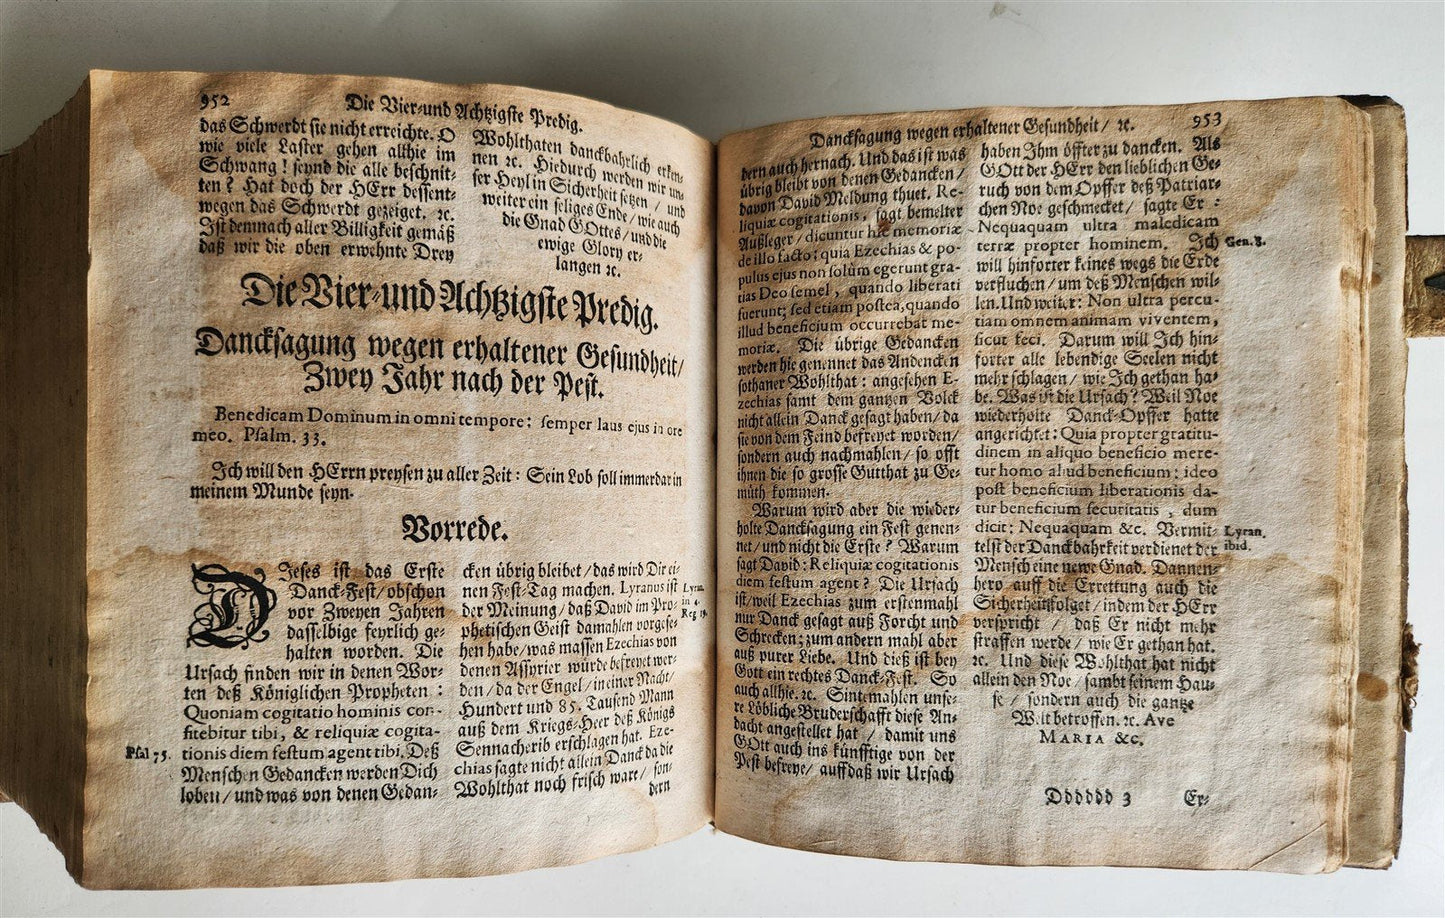 952
Die Vier-und Achtzigste Predig.
das Schwerdt sie nicht erreichte. O
wie viele Laster gehen allhie im
Schwang! seynd die alle beschnit-
ten? Hat doch der HErr dessent-
wegen das Schwerdt gezeiget. ꝛc.
Ist demnach aller Billigkeit gemäß
daß wir die oben erwehnte Drey
Wohlthaten danckbahrlich erken-
nen ꝛc. Hiedurch werden wir un-
ser Heyl in Sicherheit setzen / und
weiter ein seliges Ende / wie auch
die Gnad GOttes / und die
ewige Glory er-
langen ꝛc.
Die Vier-und Achtzigste Predig.
Dancksagung wegen erhaltener Gesundheit /
Zwey Jahr nach der Pest.
Benedicam Dominum in omni tempore: semper laus ejus in ore
meo. Psalm. 33.
Ich will den HErrn preysen zu aller Zeit: Sein Lob soll immerdar in
meinem Munde seyn.
Vorrede.
DIeses ist das Erste
Danck-Fest / obschon
vor Zweyen Jahren
dasselbige feyrlich ge-
halten worden. Die
Ursach finden wir in denen Wor-
ten deß Königlichen Propheten:
Quoniam cogitatio hominis con-
fitebitur tibi, & reliquiæ cogita-
Psal 75.
tionis diem festum agent tibi. Deß
Menschen Gedancken werden Dich
loben / und was von denen Gedan-
cken übrig bleibet / das wird Dir ei-
nen Fest-Tag machen. Lyranus ist
Lyra.
in 4.
Reg 19.
der Meinung / daß David im Pro-
phetischen Geist damahlen vorgese-
hen habe / was massen Ezechias von
denen Assyrier würde befreyet wer-
den / da der Engel / in einer Nacht /
Hundert und 85. Tausend Mann
auß dem Kriegs-Heer deß Königs
Sennacherib erschlagen hat. Eze-
chias sagte nicht allein Danck da die
Wohlthat noch frisch ware / son-
dern
Dancksagung wegen erhaltener Gesundheit / ꝛc.
953
dern auch hernach. Und das ist was
übrig bleibt von denen Gedancken /
davon David Meldung thuet. Re-
liquiæ cogitationis, sagt bemelter
Außleger / dicuntur hic memoriæ
de illo facto: quia Ezechias & po-
pulus ejus non solùm egerunt gra-
tias Deo semel, quando liberati
fuerunt; sed etiam postea, quando
illud beneficium occurrebat me-
moriæ. Die übrige Gedancken
werden hie genennet das Andencken
sothaner Wohlthat: angesehen E-
zechias samt dem gantzen Volck
nicht allein Danck gesagt haben / da
sie von dem Feind befreyet worden /
sondern auch nachmahlen / so offt
ihnen die so grosse Gutthat zu Ge-
müth kommen.
Warum wird aber die wieder-
holte Dancksagung ein Fest genen-
net / und nicht die Erste? Warum
sagt David: Reliquiæ cogitationis
diem festum agent? Die Ursach
ist / weil Ezechias zum erstenmahl
nur Danck gesagt auß Forcht und
Schrecken; zum andern mahl aber
auß purer Liebe. Und dieß ist bey
Gott ein rechtes Danck-Fest. So
auch allhie. ꝛc. Sintemahlen unse-
re Löbliche Bruderschafft diese An-
dacht angestellet hat / damit uns
GOtt auch ins künfftige von der
Pest befreye / auff daß wir Ursach
haben Ihm öffter zu dancken. Als
GOtt der HErr den lieblichen Ge-
ruch von dem Opffer deß Patriar-
chen Noe geschmecket / sagte Er:
Nequaquam ultra maledicam
terræ propter hominem. Ich
Gen. 8.
will hinforter keines wegs die Erde
verfluchen / um deß Menschen wil-
len. Und weiter: Non ultra percu-
tiam omnem animam viventem,
sicut feci. Darum will Ich hin-
forter alle lebendige Seelen nicht
mehr schlagen / wie Ich gethan ha-
be. Was ist die Ursach? Weil Noe
wiederholte Danck-Opffer hatte
angerichtet: Quia propter gratitu-
dinem in aliquo beneficio mere-
tur homo aliud beneficium; ideo
post beneficium liberationis da-
tur beneficium securitatis, dum
dicit: Nequaquam &c. Vermit-
Lyran.
ibid.
telst der Danckbahrkeit verdienet der
Mensch eine newe Gnad. Dannen-
hero auff die Errettung auch die
Sicherheit folget / indem der HErr
verspricht / daß Er nicht mehr
straffen werde / wie Er gethan hat.
ꝛc. Und diese Wohlthat hat nicht
allein den Noe / sambt seinem Hau-
se / sondern auch die gantze
Welt betroffen. ꝛc. Ave
MARIA &c.
Dddddd 3
Er-